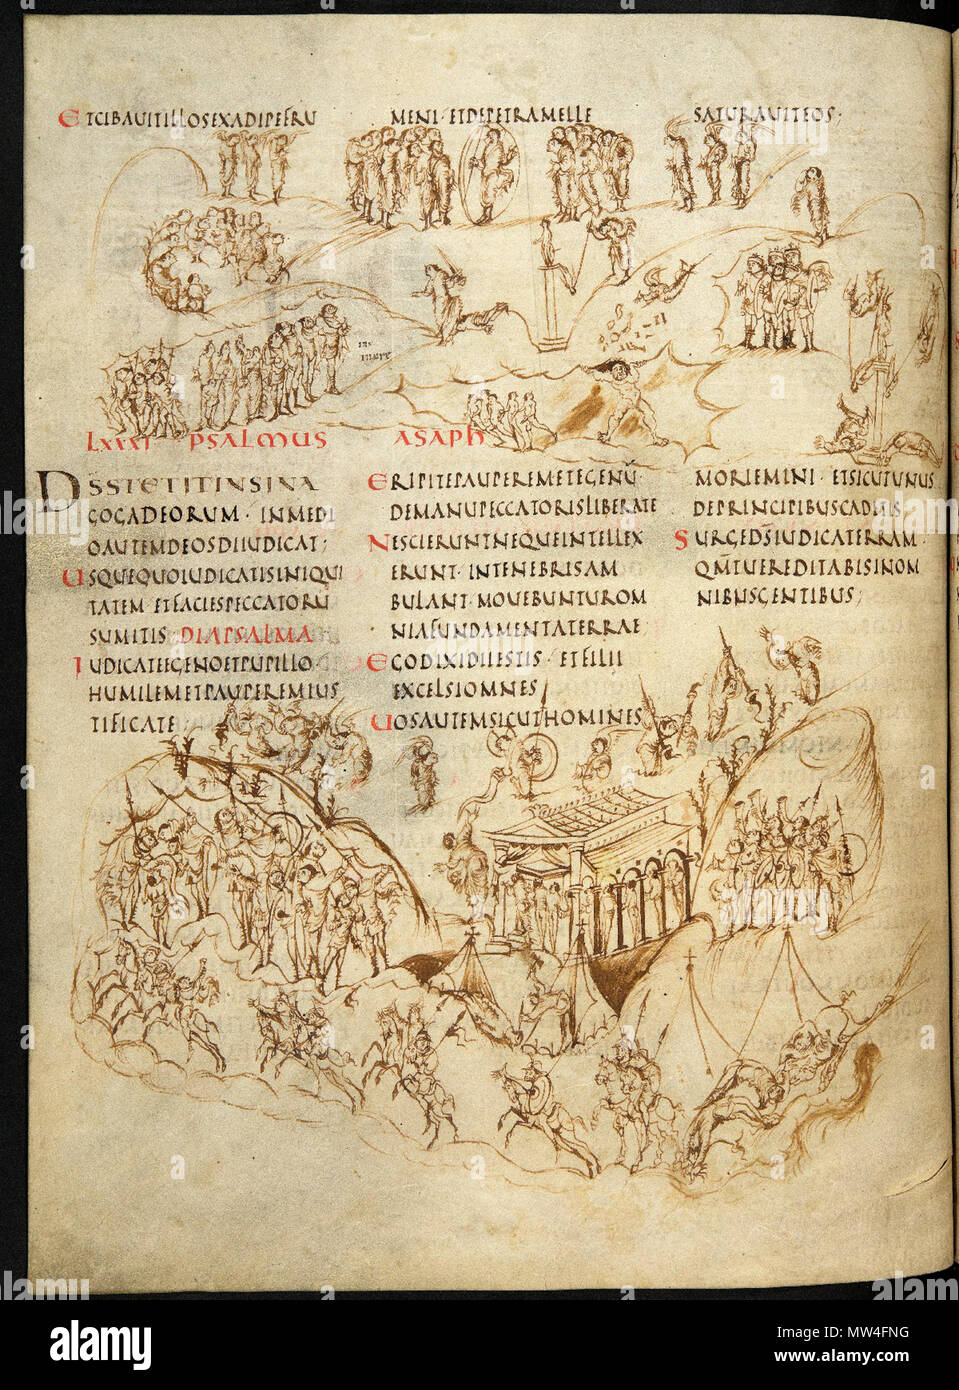 ETCIBAVITILLOSEXADIPEFRU MENI· ETDEPETRAMELLE SATURAVITEOS;
LXXXI PSALMUS ASAPH
DSSTETITINSINA
GOGADEORUM· INMEDI
OAUTEMDEOSDIIUDICAT;
USQUEQUOIUDICATISINIQUI
TATEM ETFACIESPECCATORU
SUMITIS DIAPSALMA
IUDICATEEGENOETPUPILLO·
HUMILEMETPAUPEREMIUS
TIFICATE;
ERIPITEPAUPEREMETEGENŪ
DEMANUPECCATORISLIBERATE
NESCIERUNTNEQUEINTELLEX
ERUNT· INTENEBRISAM
BULANT· MOVEBUNTUROM
NIAFUNDAMENTATERRAE
EGODIXIDIIESTIS· ETFILII
EXCELSIOMNES;
UOSAUTEMSICUTHOMINES
MORIEMINI· ETSICUTUNUS
DEPRINCIPIBUSCADITIS;
SURGEDS̄IUDICATERRAM·
QM̄TUEREDITABISINOM
NIBUSGENTIBUS;
alamy
Image ID: MW4FNG
www.alamy.com